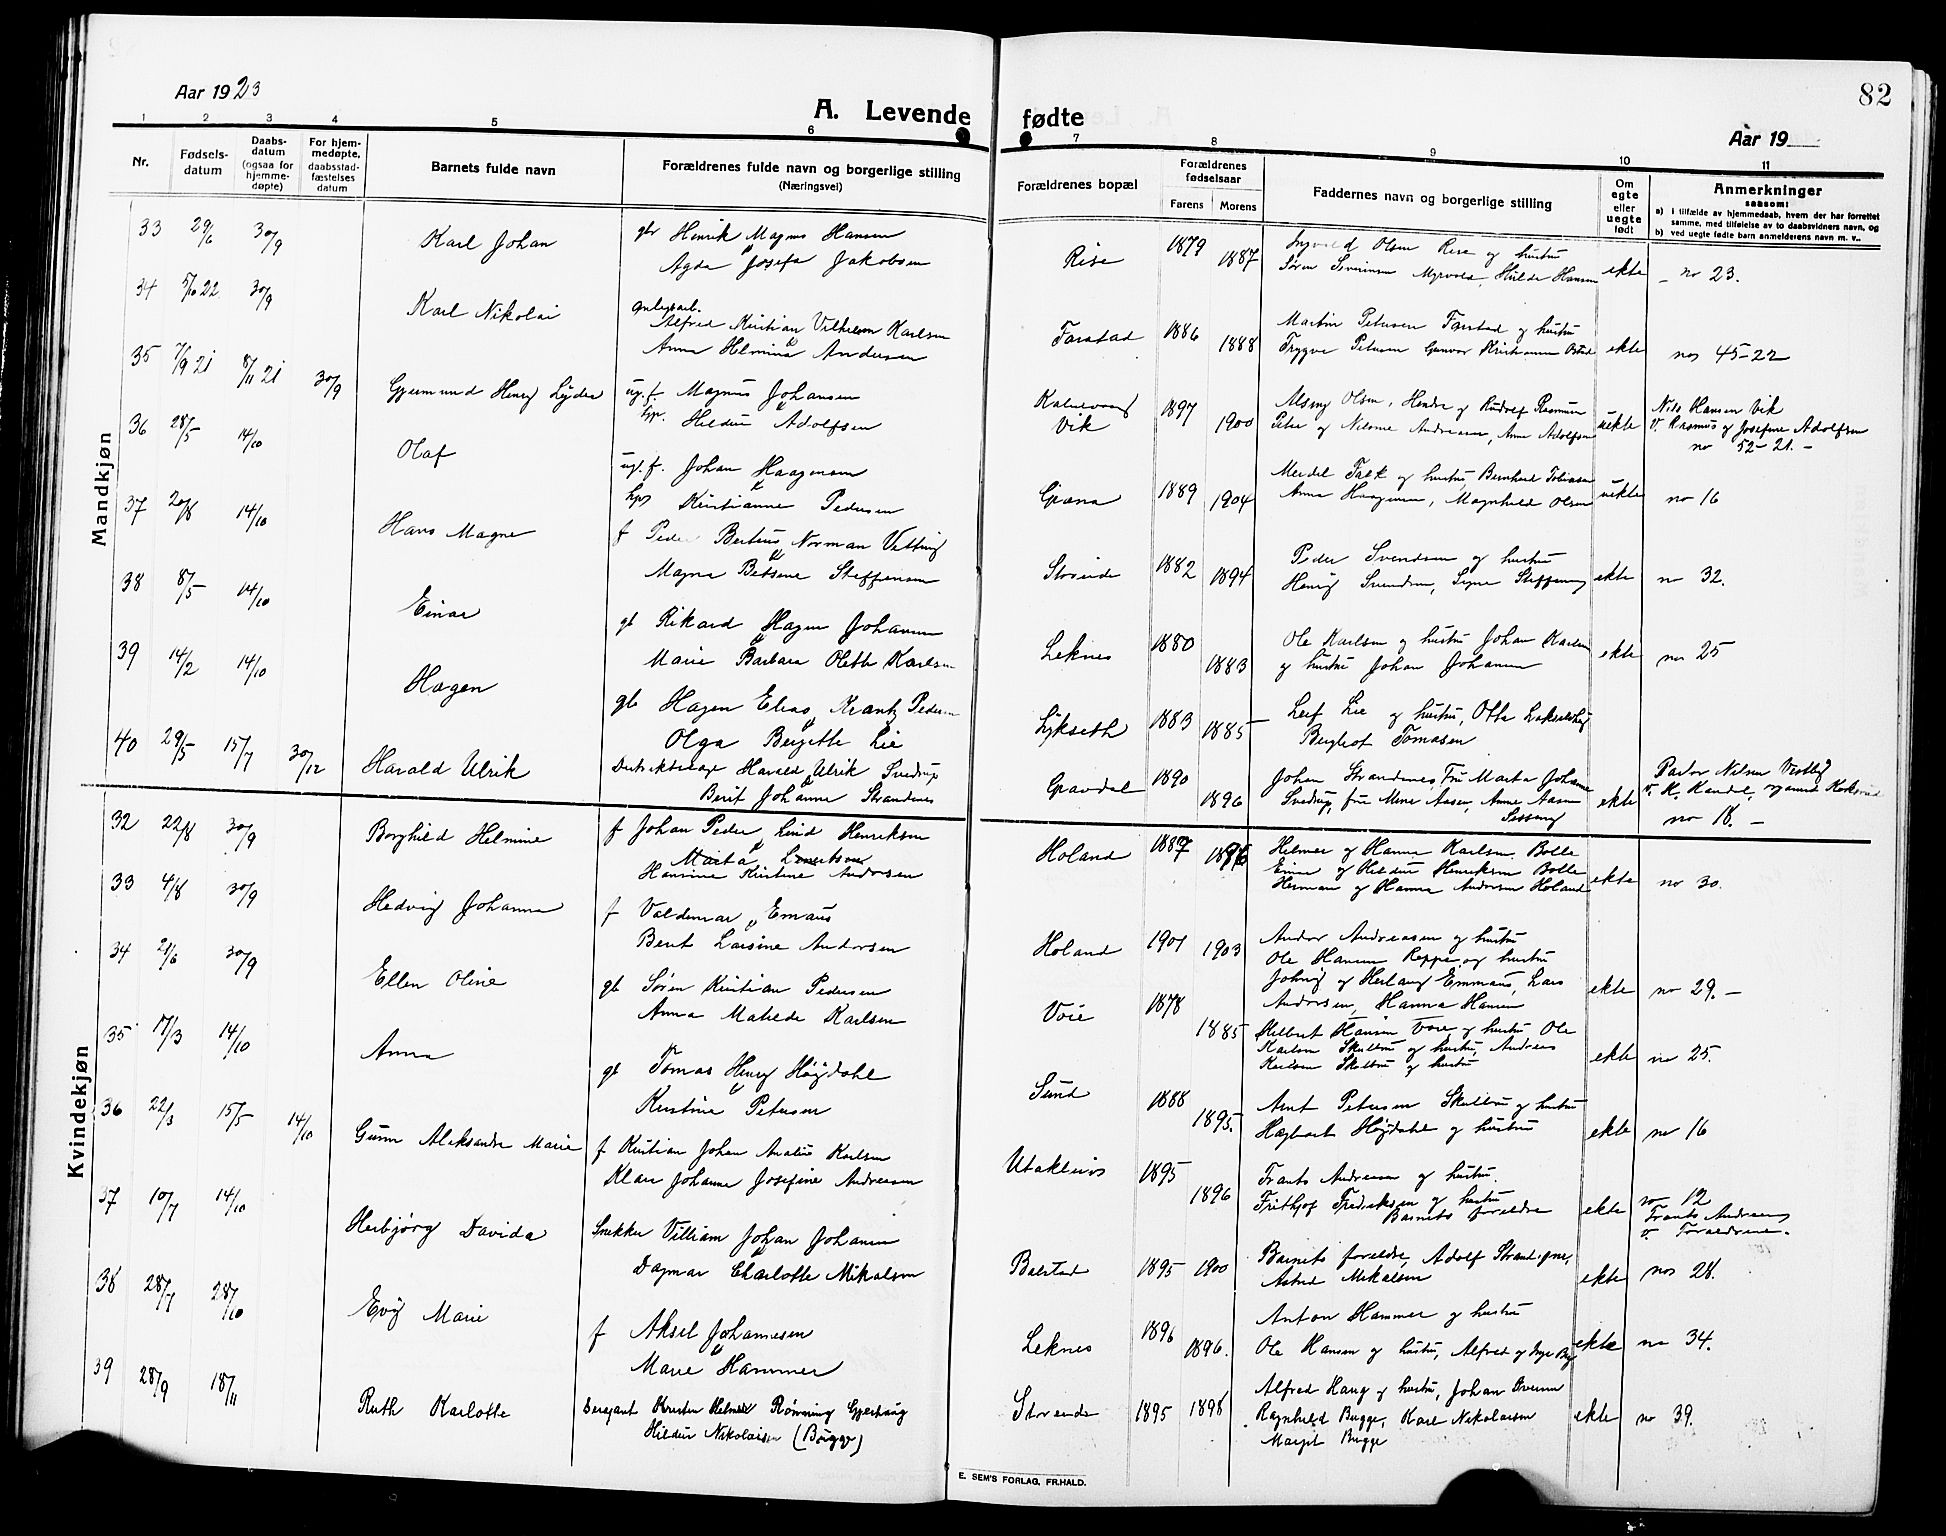 82
Aar 1923
A. Levende fødte
Aar 19
1 2 3 4 5 6 7 8 9 10 11
Nr.
Fødsels-
datum
Daabs-
datum
(ogsaa for
hjemme-
døpte)
For hjem-
medøpte,
daabsstad-
fæstelses
datum
Barnets fulde navn
Forældrenes fulde navn og borgerlige stilling
(Næringsvei)
Forældrenes bopæl
Forældrenes
fødselsaar
Farens Morens
Faddernes navn og borgerlige stilling
Om
egte
eller
uegte
født
Anmerkninger
saasom:
a) I tilfælde av hjemmedaab, hvem der har forrettet
samme, med tilføielse av to daabsvidners navn, og
b) ved uegte fødte barn anmelderens navn m. v..
Mandkjøn
33 29/6 30/9 Karl Johan
gbr Henrik Magnus Hansen
Agda Josefa Jakobsen
Rise 1879 1887
Olsen Rise og hustru
Søren Severinsen Myrvold, Hilda Hansen
ekte - no 23.
34 5/10 22 30/9 Karl Nikolai
Alfred Kristian Vilhelm Karlsen
Anna Helmina Andersen
Farstad 1886 1888
Martin Petersen Farstad og hustru
Trygve Petersen Gunvor
ekte nos 45-22
35 7/9 21 8/11 21 30/9 Gjermund Henry
ug. f. Magnus Johansen
Hildur Adolfsen
Vik 1897 1900
Rudolf Rasmussen
Peter og Andreassen, Anna Adolfsen
uekte
Nils Hansen Vik
v. Rasmus og Josefine Adolfsen
no 52-21. -
36 28/5 14/10 Olaf
ug. f. Johan Haagensen
Kristianne Pedersen
1889 1904
Meidel Falk og hustru, Bernhard Tobiassen
Anna Haagensen, Magnhild Olsen
uekte no 16
37 20/8 14/10 Hans Magne
f Peder Berteus Norman Vetting
Magna Betsine Steffensen
1882 1894
Peder Svendsen og hustru
Henrij Svendsen, Signe Steffensen
ekte no 32.
38 8/5 14/10 Einar
gb Rikard Hagen Johansen
Marie Barbara Olette Karlsen
Leknes 1880 1883
Ole Karlsen og hustru Johan Karlsen
og hustru Johan Johansen
ekte no 25
39 14/2 14/10 Hagen
gb Hagen Elias Krantz Pedersen
Olga Bergitte Lie
Lykseth 1883 1885
Leif Lie og hustru, Otto
Berglrot Tomasen
40 29/5 15/7 30/12 Harald Ulrik
Distriktslæge Harald Ulrik Sverdrup
Berit Johanne Strandenes
Gravdal 1890 1896
Johan Strandenes, Fru Marta Johanne
Sverdrup, fru Mina Aasen, Anne Aasen
ekte
Pastor Nilsen
no 18. -
Kvindekjøn
32 22/8 30/9 Borghild Helmine
f Johan Peder Lind Henriksen
Marta Lenertsen
Hansine Kristine Andersen
Holand 1887 1896
Helmer og Hanna Karlsen Bolle
Einar og Hildur Henriksen Bolle
Herman og Hanna Andersen Holand
ekte no 30.
33 4/8 30/9 Hedvig Johanna
f Valdemar Emaus
Berit Larsine Andersen
Holand 1901 1903
Andor Andreassen og hustru
Ole Hansen Reppe og hustru
Johrig og Herlaug Emmaus, Lars
Andersen, Hanna Hansen
ekte no 29. -
34 21/6 30/9 Ellen Oline
gb Søren Kristian Pedersen
Anna Matilde Karlsen
Voie 1878 1885
Hilbert Hansen Voie og hustru Ole
Karlsen Skullbru og hustru, Andreas
Karlsen Skullbru og hustru
ekte no 25.
35 17/3 14/10 Anna
gb Tomas Henry Høydahl
Kristine Petersen
Sund 1888 1895.
Arnt Petersen Skullbru og hustru
Hagbart Høydahl og hustru
ekte no 16
36 22/3 15/5 14/10 Gunn Aleksandra Marie
f Kristian Johan Analius Karlsen
Klara Johanna Josefine Andreasen
Utakleiv 1895 1896
Frants Andreasen og hustru.
Frithjof Fredriksen og hustru
Barnets foreldre
ekte
no 12
Frants Andreasen
v. Foreldrene.
37 10/7 14/10 Herbjørg Davida
Snekker Villiam Johan Johansen
Dagmar Charlotte Mikalsen
Balstad 1895 1900
Barnets foreldre, Adolf
Astrid Mikalsen
ekte nos 28.
38 28/7 28/10 Marie
f Aksel Johannesen
Marie Hammer
Leknes 1896 1896.
Anton Hammer og hustru
Ole Hansen og hustru, Alfred og
ekte no 34.
39 28/9 18/11 Ruth Karlotte
Sersjant Kristen Helmer Rønning Gjertsaug
Hildur Nikolaisen (Bugge)
1895 1898
Alfred Haug og hustru, Johan
Ragnhild Bugge, Karl Nikolaisen
Margit Bugge
ekte no 39.
E. SEM'S FORLAG. FR.HALD.